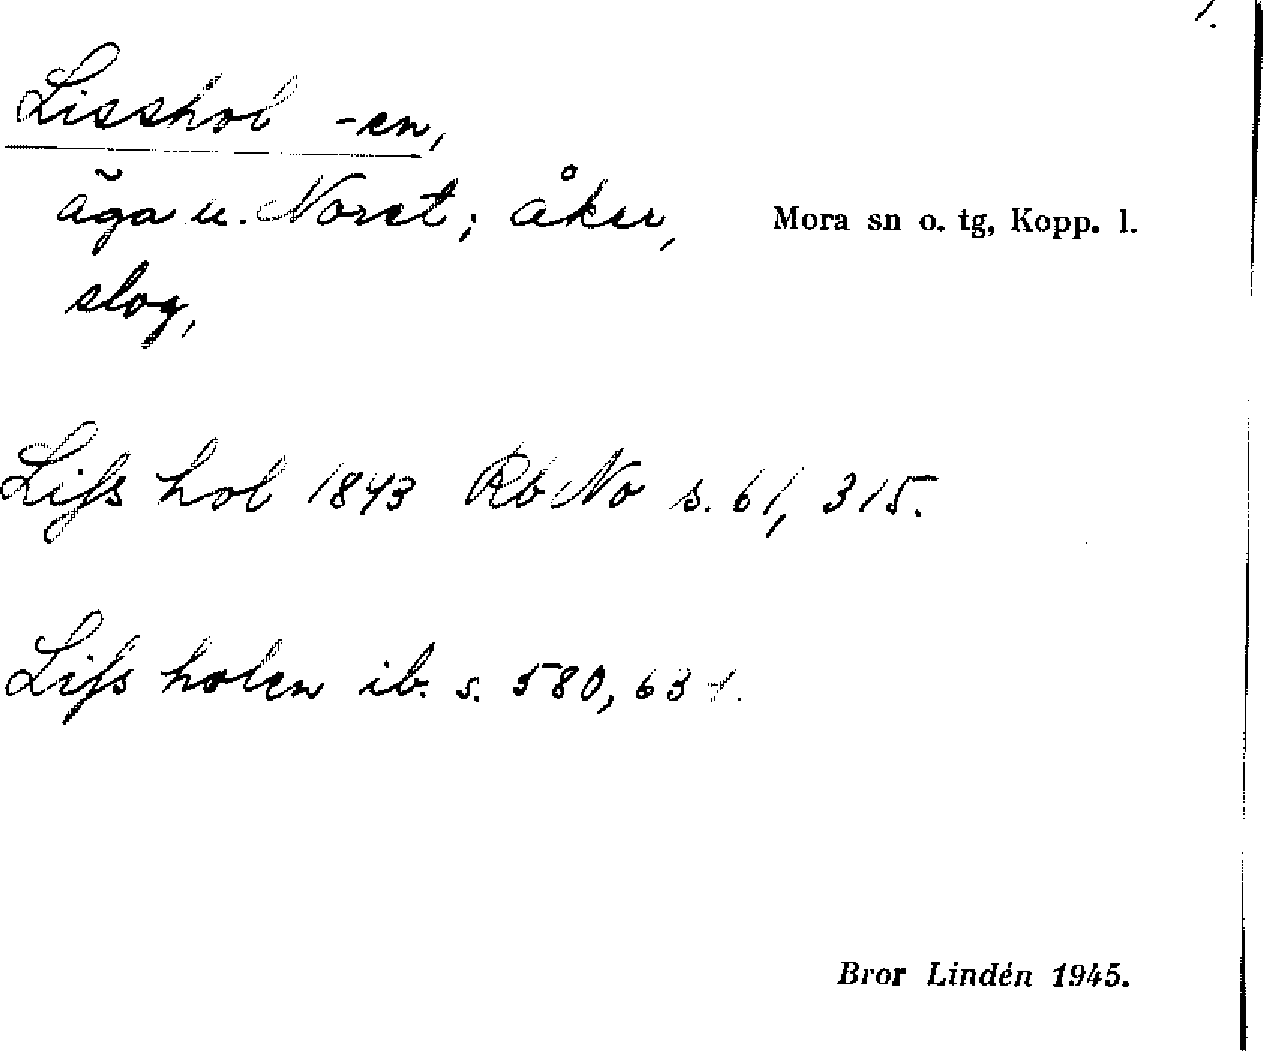 1.
Lisshol -en,
äga u. Noret; åker, Mora sn o. tg, Kopp. l.
slog,
Liss hol 1843 Rb No s. 61, 315.
Liss holen ib. s. 580, 634.
Bror Lindén 1945.